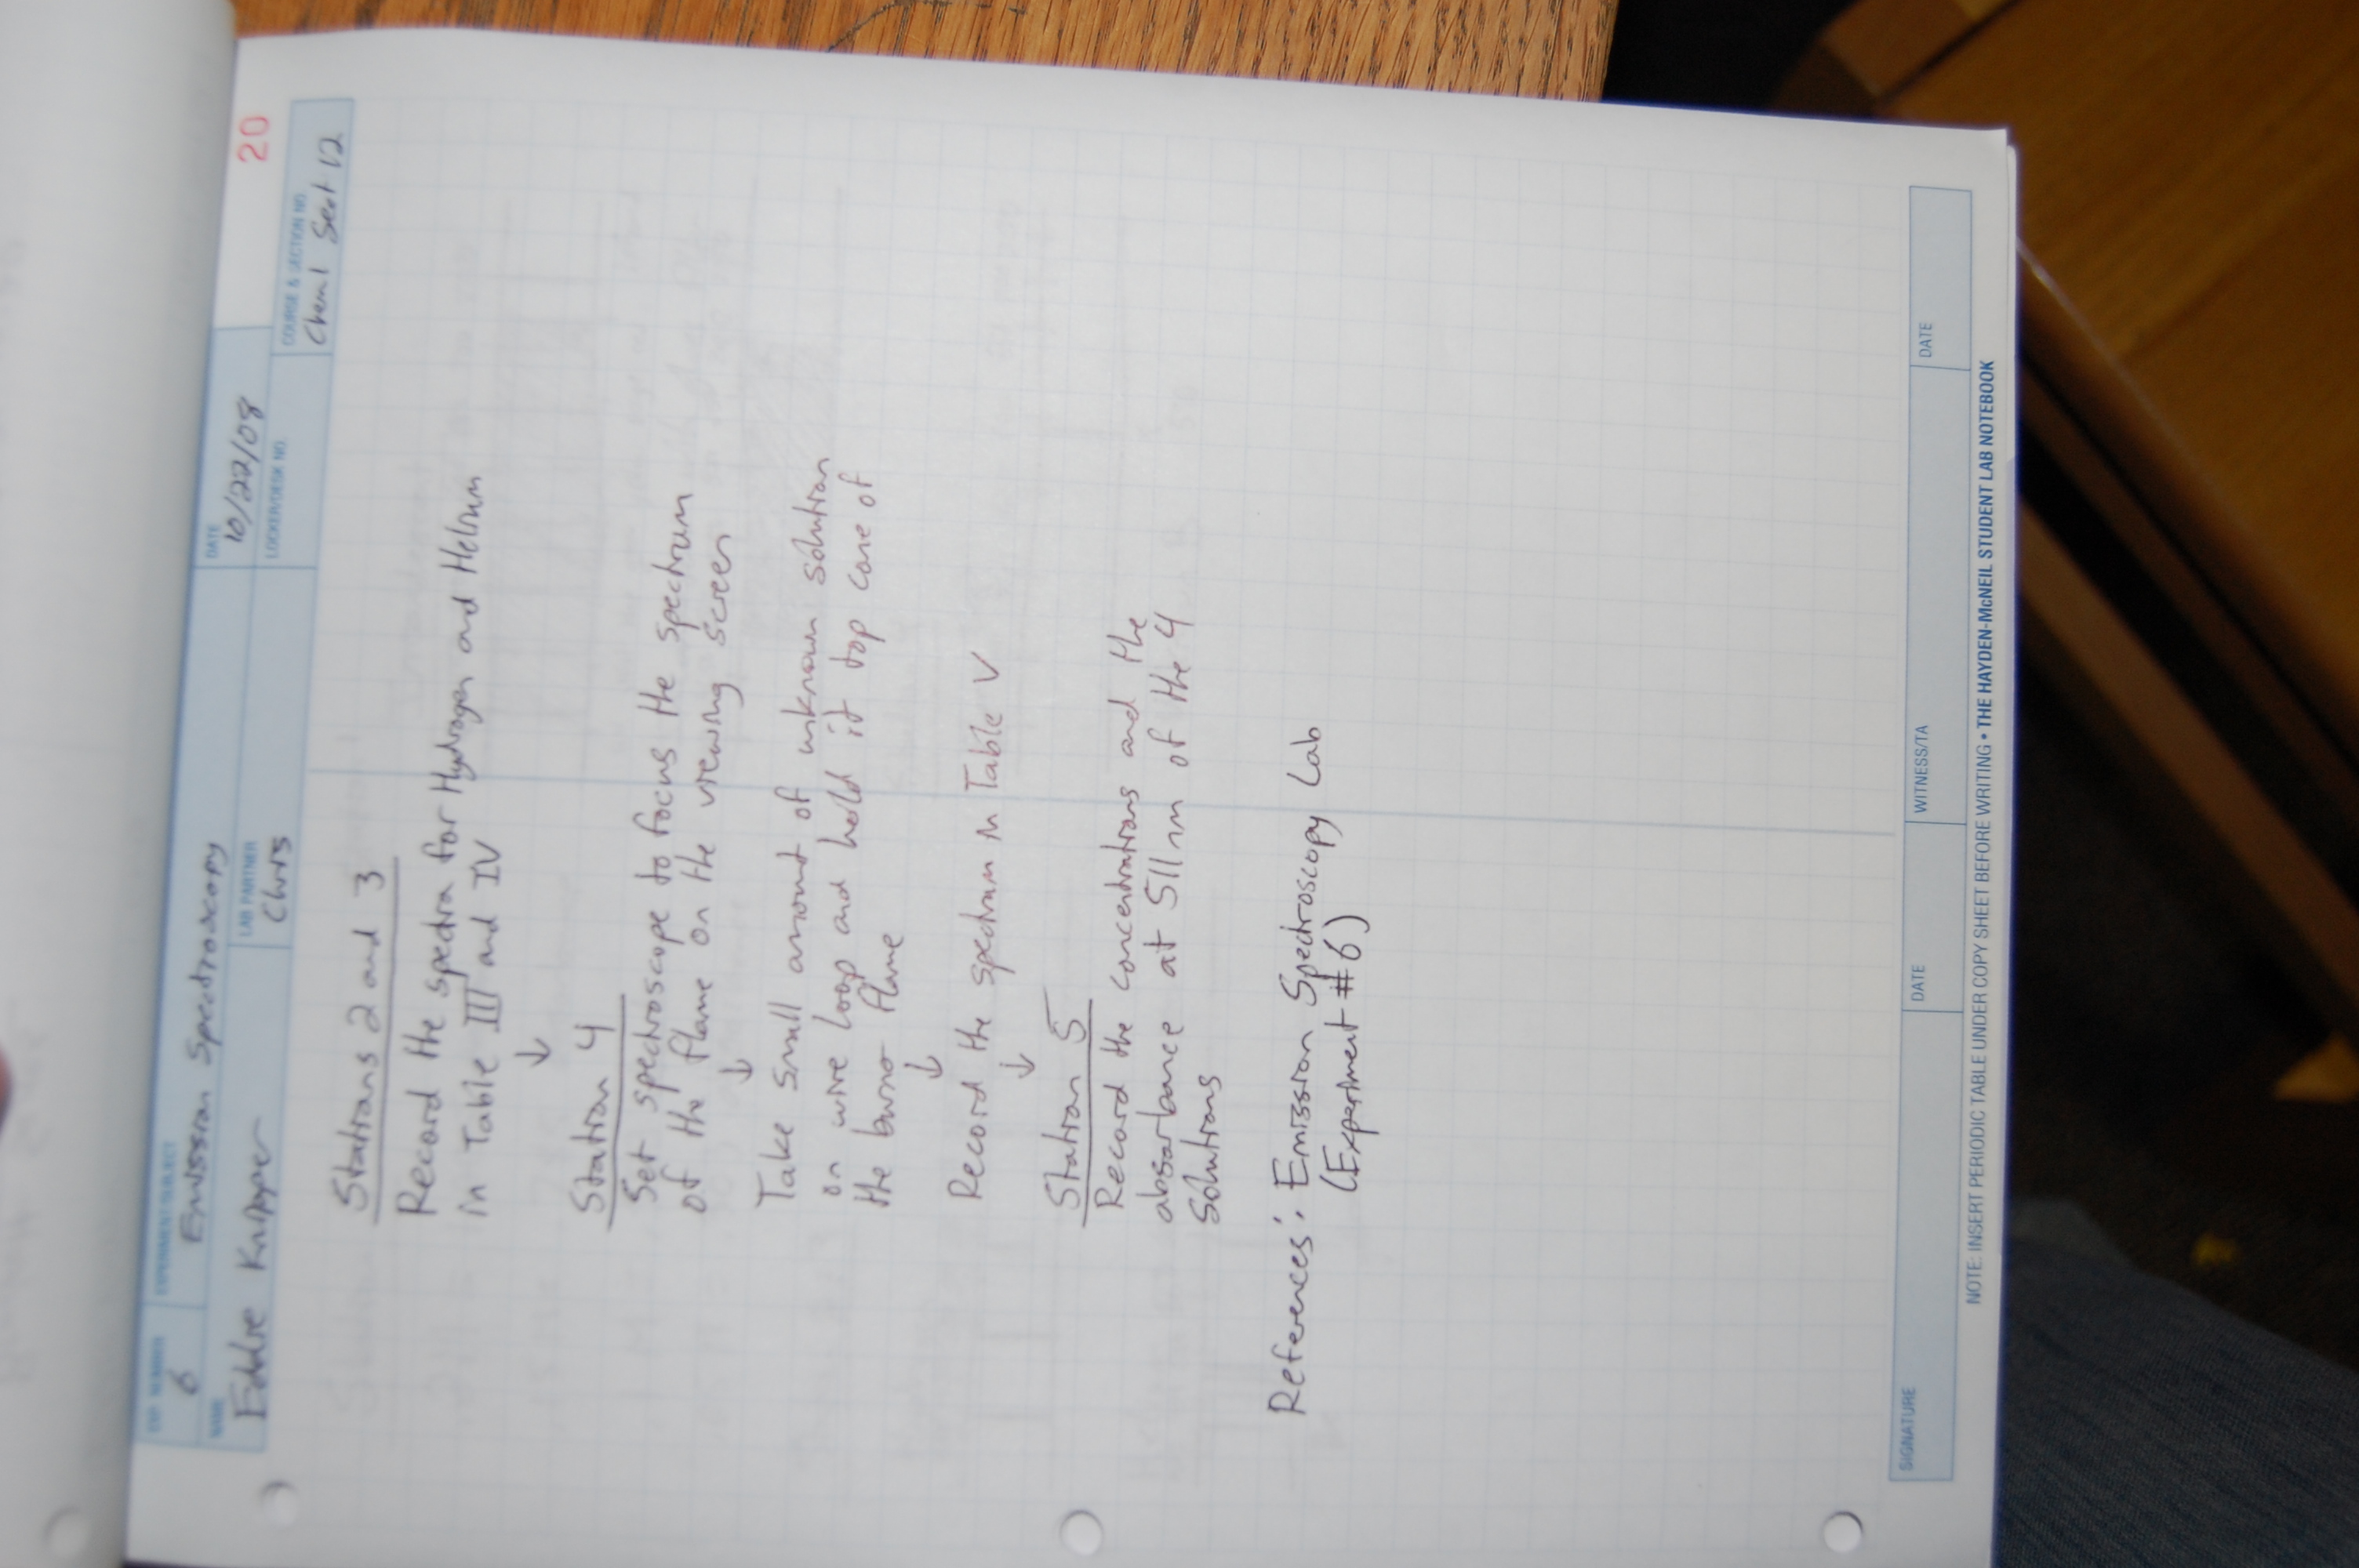 20
EXP. NUMBER
EXPERIMENT/SUBJECT
DATE
6
Emission Spectroscopy
10/22/08
NAME
LAB PARTNER
LOCKER/DESK NO.
COURSE & SECTION NO.
Eddie
Chris
Chem 1 Sect 12
Stations 2 and 3
Record the spectra for Hydrogen and Helium
in Table III and IV
↓
Station 4
Set spectroscope to focus the spectrum
of the flame on the viewing screen
↓
Take small amount of unknown solution
on wire loop and hold it top cone of
the flame
↓
Record the spectrum in Table V
↓
Station 5
Record the concentrations and the
absorbance at 511 nm of the 4
solutions
References: Emission Spectroscopy Lab
(Experiment #6)
SIGNATURE
DATE
WITNESS/TA
DATE
NOTE: INSERT PERIODIC TABLE UNDER COPY SHEET BEFORE WRITING • THE HAYDEN-McNEIL STUDENT LAB NOTEBOOK